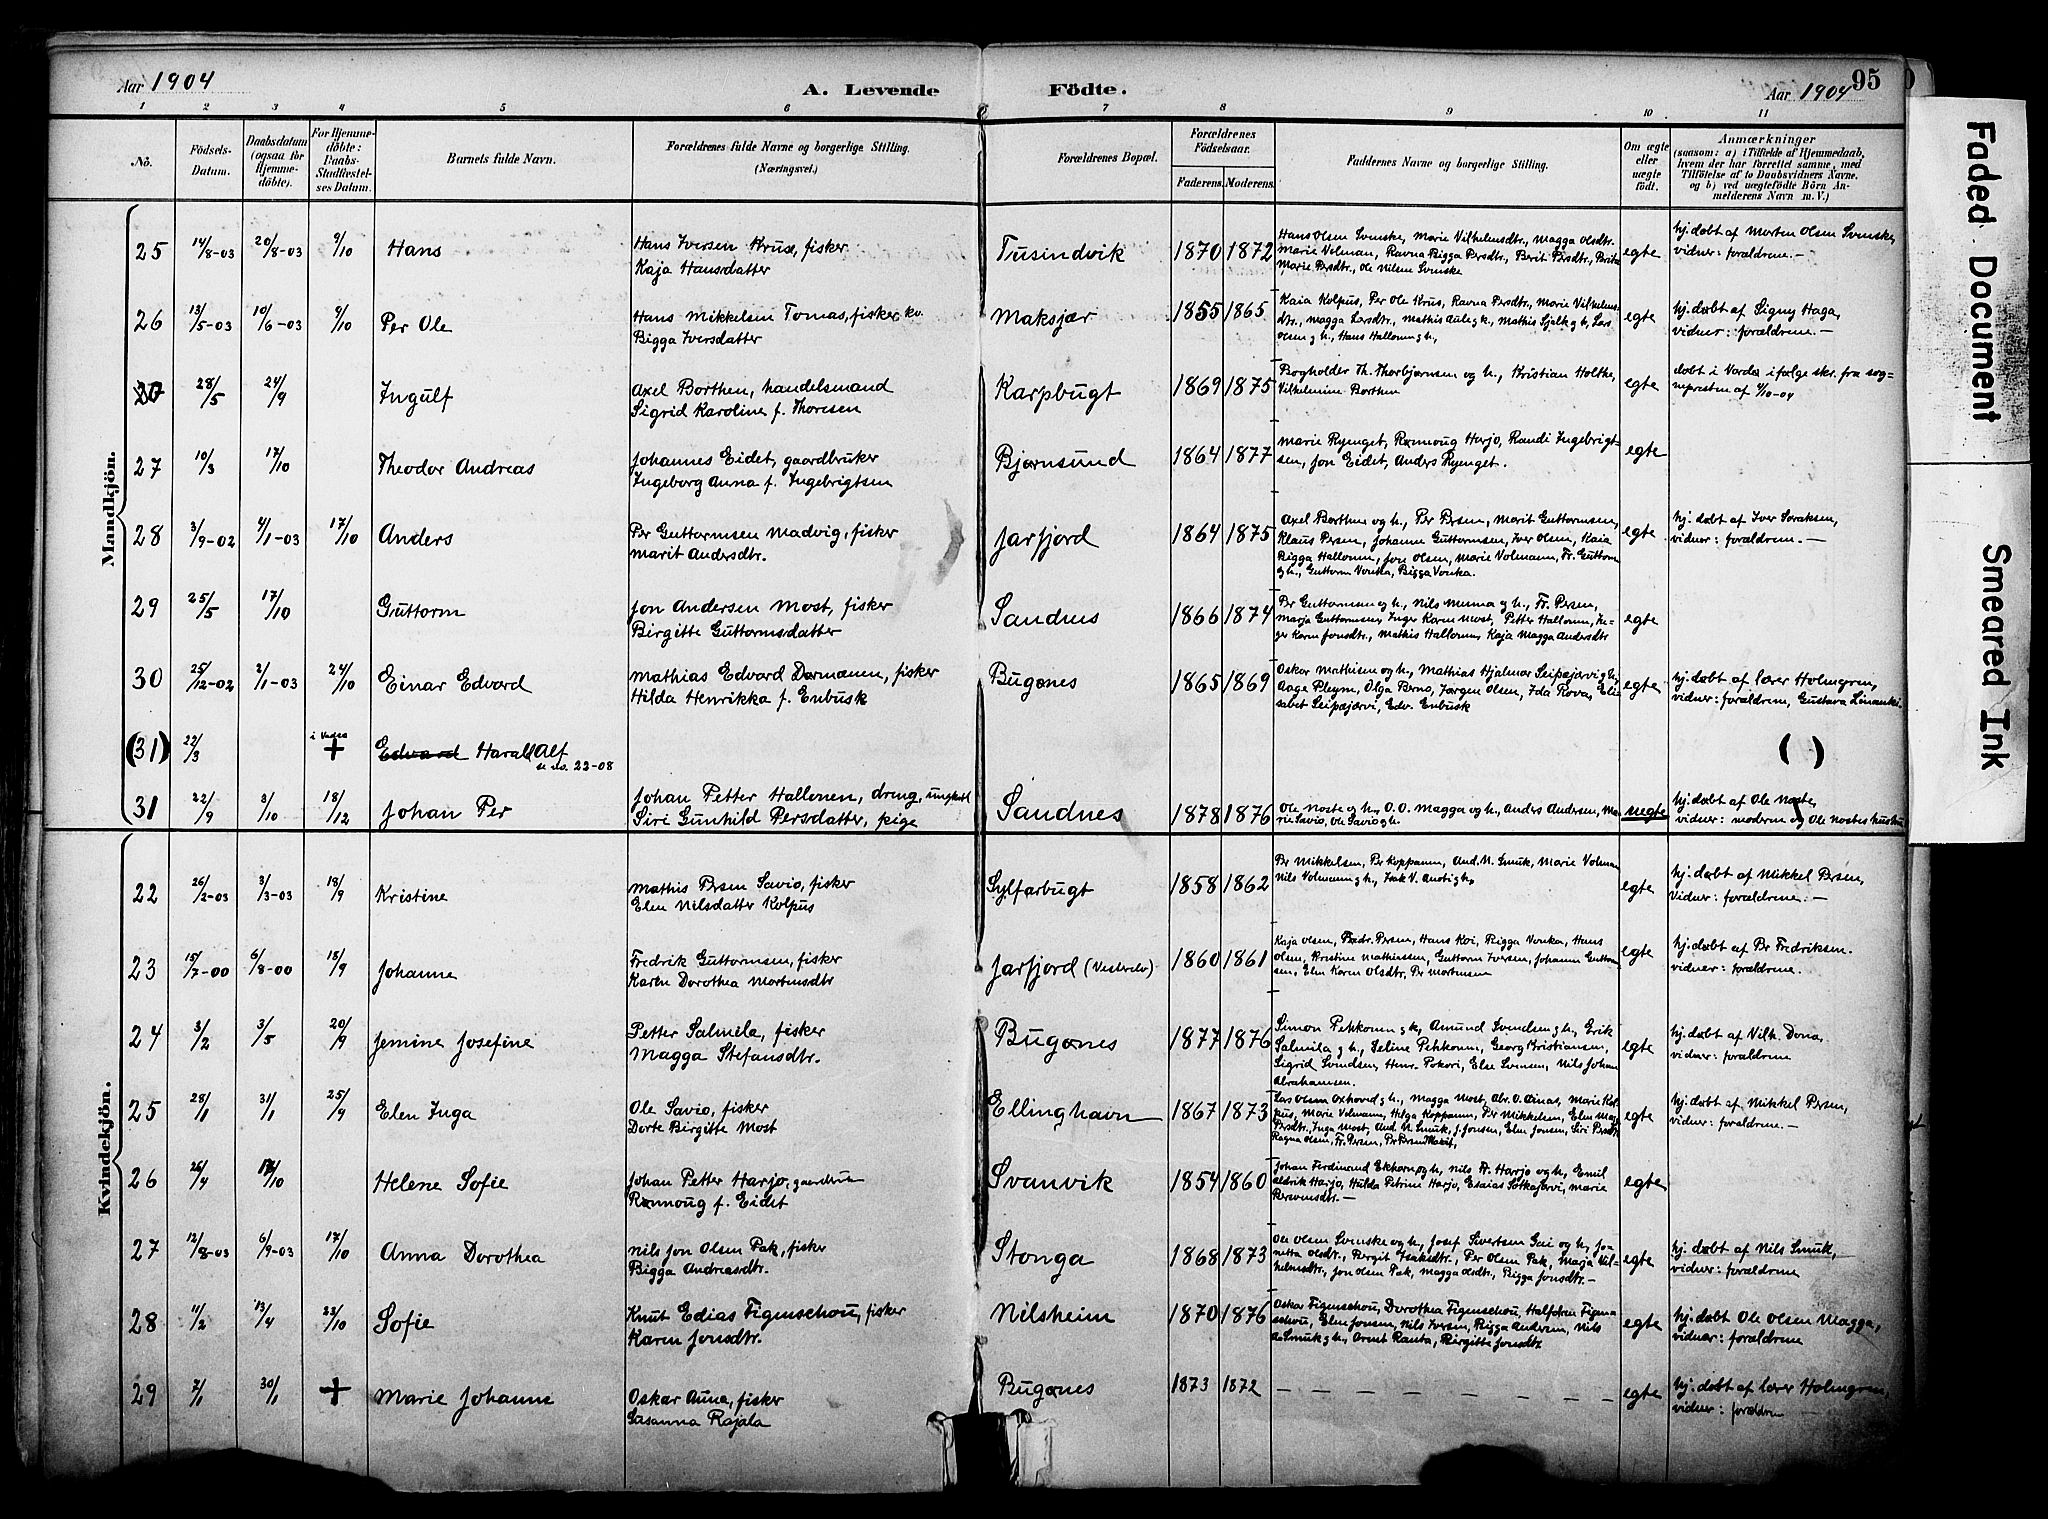 Aar 1904
A. Levende Födte.
Aar 1904
95
1 2 3 4 5 6 7 8 9 10 11
No.
Födsels-Datum.
Daabsdatum (ogsaa for Hjemme-döbte).
For Hjemme-döbte: Daabs-Stadfæstel-ses Datum.
Barnets fulde Navn.
Forældrenes fulde Navne og borgerlige Stilling. (Næringsvei.)
Forældrenes Bopæl.
Forældrenes Födselsaar.
Faderens. Moderens.
Faddernes Navne og borgerlige Stilling.
Om ægte eller uægte födt.
Anmærkninger
(saasom: a) i Tilfælde af Hjemmedaab,
hvem der har forrettet samme, med
Tilföielse af to Daabsvidners Navne.
og b) ved uægtefödte Börn An-
melderens Navn m. V.)
Mandkjön.
25 14/8-03 20/8-03 9/10 Hans
Hans Iversen Krus, fisker
Kaja Hansdatter
Tusindvik 1870 1872
Hans Olsen Svenske, Marie Vilhelmsdtr., Magga Olsdtr.
Marie Volman, Ravna Bigga Persdtr., Berit Persdtr., Brita
Marie Persdtr., Ole Nilsen Svenske
egte
hj. døbt af Morten Olsen Svenske,
vidner: forældrene.—
26 13/5-03 10/6-03 9/10 Per Ole
Hans Mikkelsen Tomas, fisker kv.
Bigga Iversdatter
Maksjær 1855 1865
Kaia Kolpus, Per Ole Krus, Ravna Persdtr., Marie Vilhelms-
dtr., Magga Larsdtr., Mathis Aule g h., Mathis Sjelk g h, Lars
Olsen g h., Hans Hallonen g h,
egte
hj. døbt af Signy Haga,
vidner: forældrene.—
28/5 24/9 Ingulf
Axel Borthen, handelsmand
Sigrid Karoline f. Thoresen
Karpbugt 1869 1875
Bogholder Th. Thorbjørnsen og h., Kristian Holthe,
Vilhelmine Borthen
egte
døbt i Vardø ifølge skr. fra sog-
nepresten af 1/10-04
27 10/3 17/10 Theodor Andreas
Johannes Eidet, gaardbruker
Ingeborg Anna f. Ingebrigtsen
Bjørnsund 1864 1877
Marie Ryenget, Rønnoug Harjo, Randi Ingebrigt-
sen, Jon Eidet, Anders Ryenget.
egte
28 3/9-02 4/1-03 17/10 Anders
Per Guttormsen Madvig, fisker
Marit Andersdtr.
Jarfjord 1864 1875
Axel Borthen og h., Per Persen, Marit Guttormsen,
Klaus Persen, Johann Guttormsen, Iver Olsen, Kaia
Bigga Hallonen, Jon Olsen, Marie Volmann, Fr. Guttorm
g h., Guttorm Vonka, Bigga Vonka.
egte
hj. døbt af Iver Soraksen,
vidner: forældrene.—
29 25/5 17/10 Guttorm
Jon Andersen Most, fisker
Birgitte Guttormsdatter
Sandnes 1866 1874
Per Guttormsen g h., Nils Mumma g h., Fr. Persen,
Marja Guttormsen, Inger Karen Most, Petter Hallonen, In-
ger Karen Jonsdtr., Mathis Hallonen, Kaja Magga Andersdtr
egte
30 25/12-02 2/1-03 24/10 Einar Edvard
Mathias Edvard Dørmænen, fisker
Hilda Henrikka f. Enbusk
Bugønes 1865 1869
Oskar Mathisen og h., Mathias Hjalmar Seipæjærvi g h,
Aage Pleym, Olga Perno, Jørgen Olsen, Ida Rova, Eli-
sabet Seipæjærvi, Edv. Enbusk
egte
hj. døbt af lærer Holmgren,
vidner: forældrene, Gustava Linanki.
(31) 22/3 i Vadsø + Edvard Harald Alf
se no. 22-08
( )
31 22/9 3/10 18/12 Johan Per
Johan Petter Hallonen, dreng, ungkarl
Siri Gunhild Persdatter, pige
Sandnes 1878 1876
Ole Noste og h., O. O. Magga og h., Anders Andersen, Ma-
rie Savio, Ole Savio g h.
uegte
hj. døbt af Ole Noste,
vidner: moderen og Ole Nostes hustru
Kvindekjön.
22 26/2-03 3/3-03 18/9 Kristine
Mathis Persen Savio, fisker
Elen Nilsdatter Kolpus
Sylfarbugt 1858 1862
Per Mikkelsen, Per Koppanen, And. N. Smuk, Marie Volman
Nils Volmann g h., Isak V. Anoti g h,
egte
hj. døbt af Mikkel Persen,
vidner: forældrene.—
23 15/7-00 6/8-00 18/9 Johanne
Fredrik Guttormsen, fisker
Karen Dorothea Mortensdtr
Jarfjord (Vestrelv) 1860 1861
Kaja Olsen, Fredr. Persen, Hans Koi, Bigga Vonka, Hans
Olsen, Kristine Mathissen, Guttorm Iversen, Johann Guttorm-
sen, Elen Karen Olsdtr, Per Mortensen
egte
hj. døbt af Per Fredriksen.
vidner: forældrene.
24 3/2 3/5 20/9 Jemine Josefine
Petter Salmela, fisker
Magga Stefansdtr.
Bugønes 1877 1876
Simon Pekkonen g h, Amund Svendsen g h., Erik
Salmila g h., Seline Pekkonen, Georg Kristiansen,
Sigrid Svendsen, Henr. Pokori, Else Svensen, Nils Johan
Abrahamsen.
egte
hj. døbt af Vilh. Dona,
vidner: forældrene
25 28/1 31/1 25/9 Elen Inga
Ole Savio, fisker
Dorte Birgitte Most
Ellinghavn 1867 1873
Lars Olsen Oxhoved g h., Magga Most, Abr. O. Ainas, Marie Kol-
pus, Marie Volmann, Helga Koppanen, Per Mikkelsen, Elen Mag
Persdtr., Inga Most, And. N. Smuk, J. Jonsen, Elen Jonsen, Siri Persdtr
Ragna Olsen, Fr. Persen, Per Persen
egte
hj. døbt af Mikkel Persen,
vidner: forældrene.—
26 26/4 17/10 Helene Sofie
Johan Petter Harjo, gaardbrug
Rønnoug f. Eidet
Svanvik 1854 1860
Johan Ferdinand Ekhorn g h., Nils A. Harjo og h., Emil
Aldrik Harjo, Hulda Petrine Harjo, Esaias Sotkajærvi, Marie
Persvensdtr.—
egte
27 12/8-03 6/9-03 17/10 Anna Dorothea
Nils Jon Olsen Pak, fisker
Bigga Andreasdtr.
Stonga 1868 1873
Ole Olsen Svenske og h., Josef Sivertsen Gai og h., Jo-
netta Olsdtr., Bergit Isaksdtr., Per Olsen Pak, Marja Vil-
helmsdtr., Jon Olsen Pak, Magga Olsdtr., Bigga Jonsdtr.—
egte
hj. døbt af Nils Smuk,
vidner: forældrene
28 11/2 13/4 23/10 Sofie
Knut Edias Figenschou, fisker
Karen Jonsdtr.
Nilsheim 1870 1876
Oskar Figenschou, Dorothea Figenschou, Halfdren Figen-
schou, Elen Jonsen, Nils Iversen, Bigga Andersen, Nils
A. Smuk g h., Arent Ranta, Birgitte Jonsdtr.
egte
hj. døbt Ole Olsen Magga,
vidner: forældrene
29 7/1 30/1 + Marie Johanne
Oskar Auna, fisker
Susanna Rajala
Bugønes 1873 1872
— — — — — — — — —
egte
hj. døbt af lærer Holmgren,
vidner: forældren
Faded Document
Smeared Ink